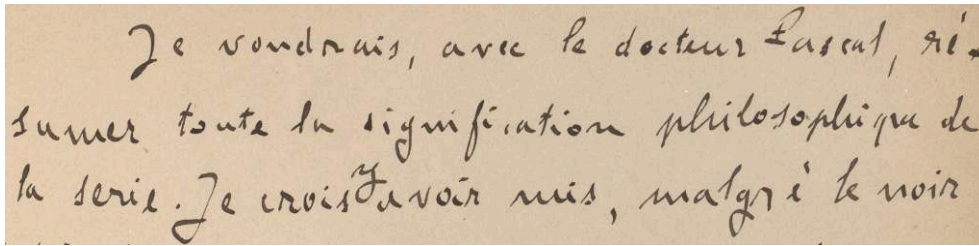 Je voudrais, avec le docteur Pascal, ré-
sumer toute la signification philosophique de
la serie. Je crois y avoir mis, malgré le noir